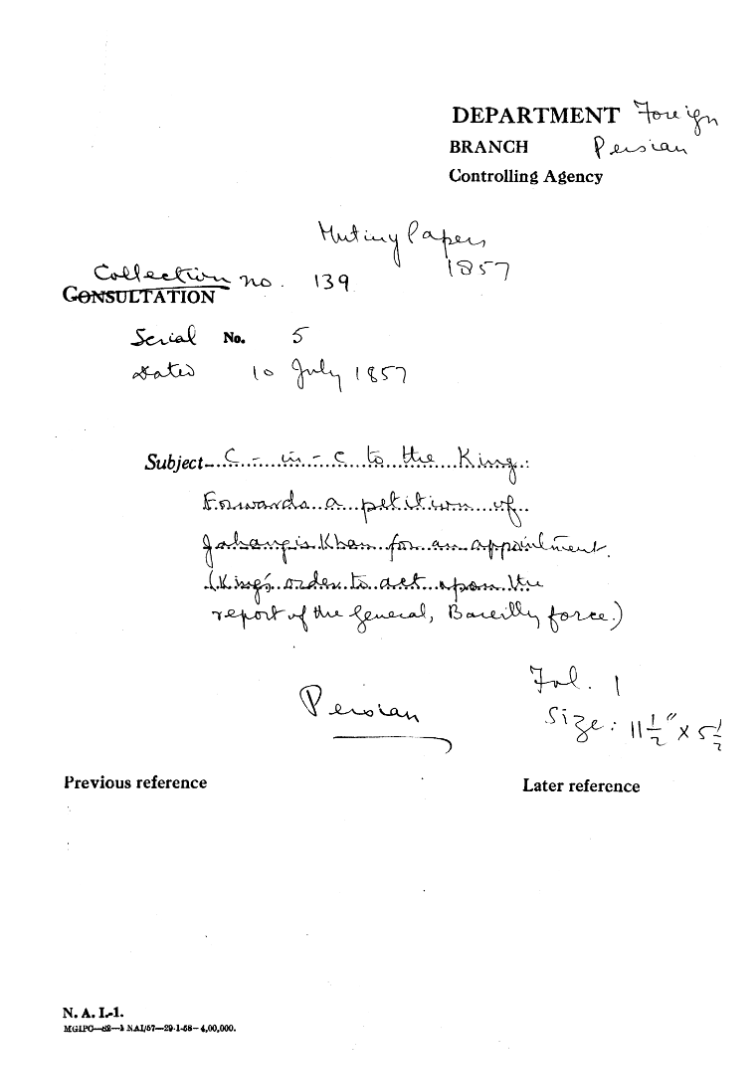 DEPARTMENT Foreign
BRANCH Persian
Controlling Agency
Mutiny Papers
1857
Collection no. 139
CONSULTATION
Serial No. 5
Dated 10 July 1857
Subject- C-in-C to the King:
Forwards a petition of
Jahangir Khan for an appointment.
(King's order to act upon the
report of the General, Bareilly force.)
Persian
Fol. 1
Size: 11 1/2" x 5 1/2
Previous reference
Later reference
N. A. I.-1.
MGIPC—S2—1 NAI/57—29-1-58—4,00,000.